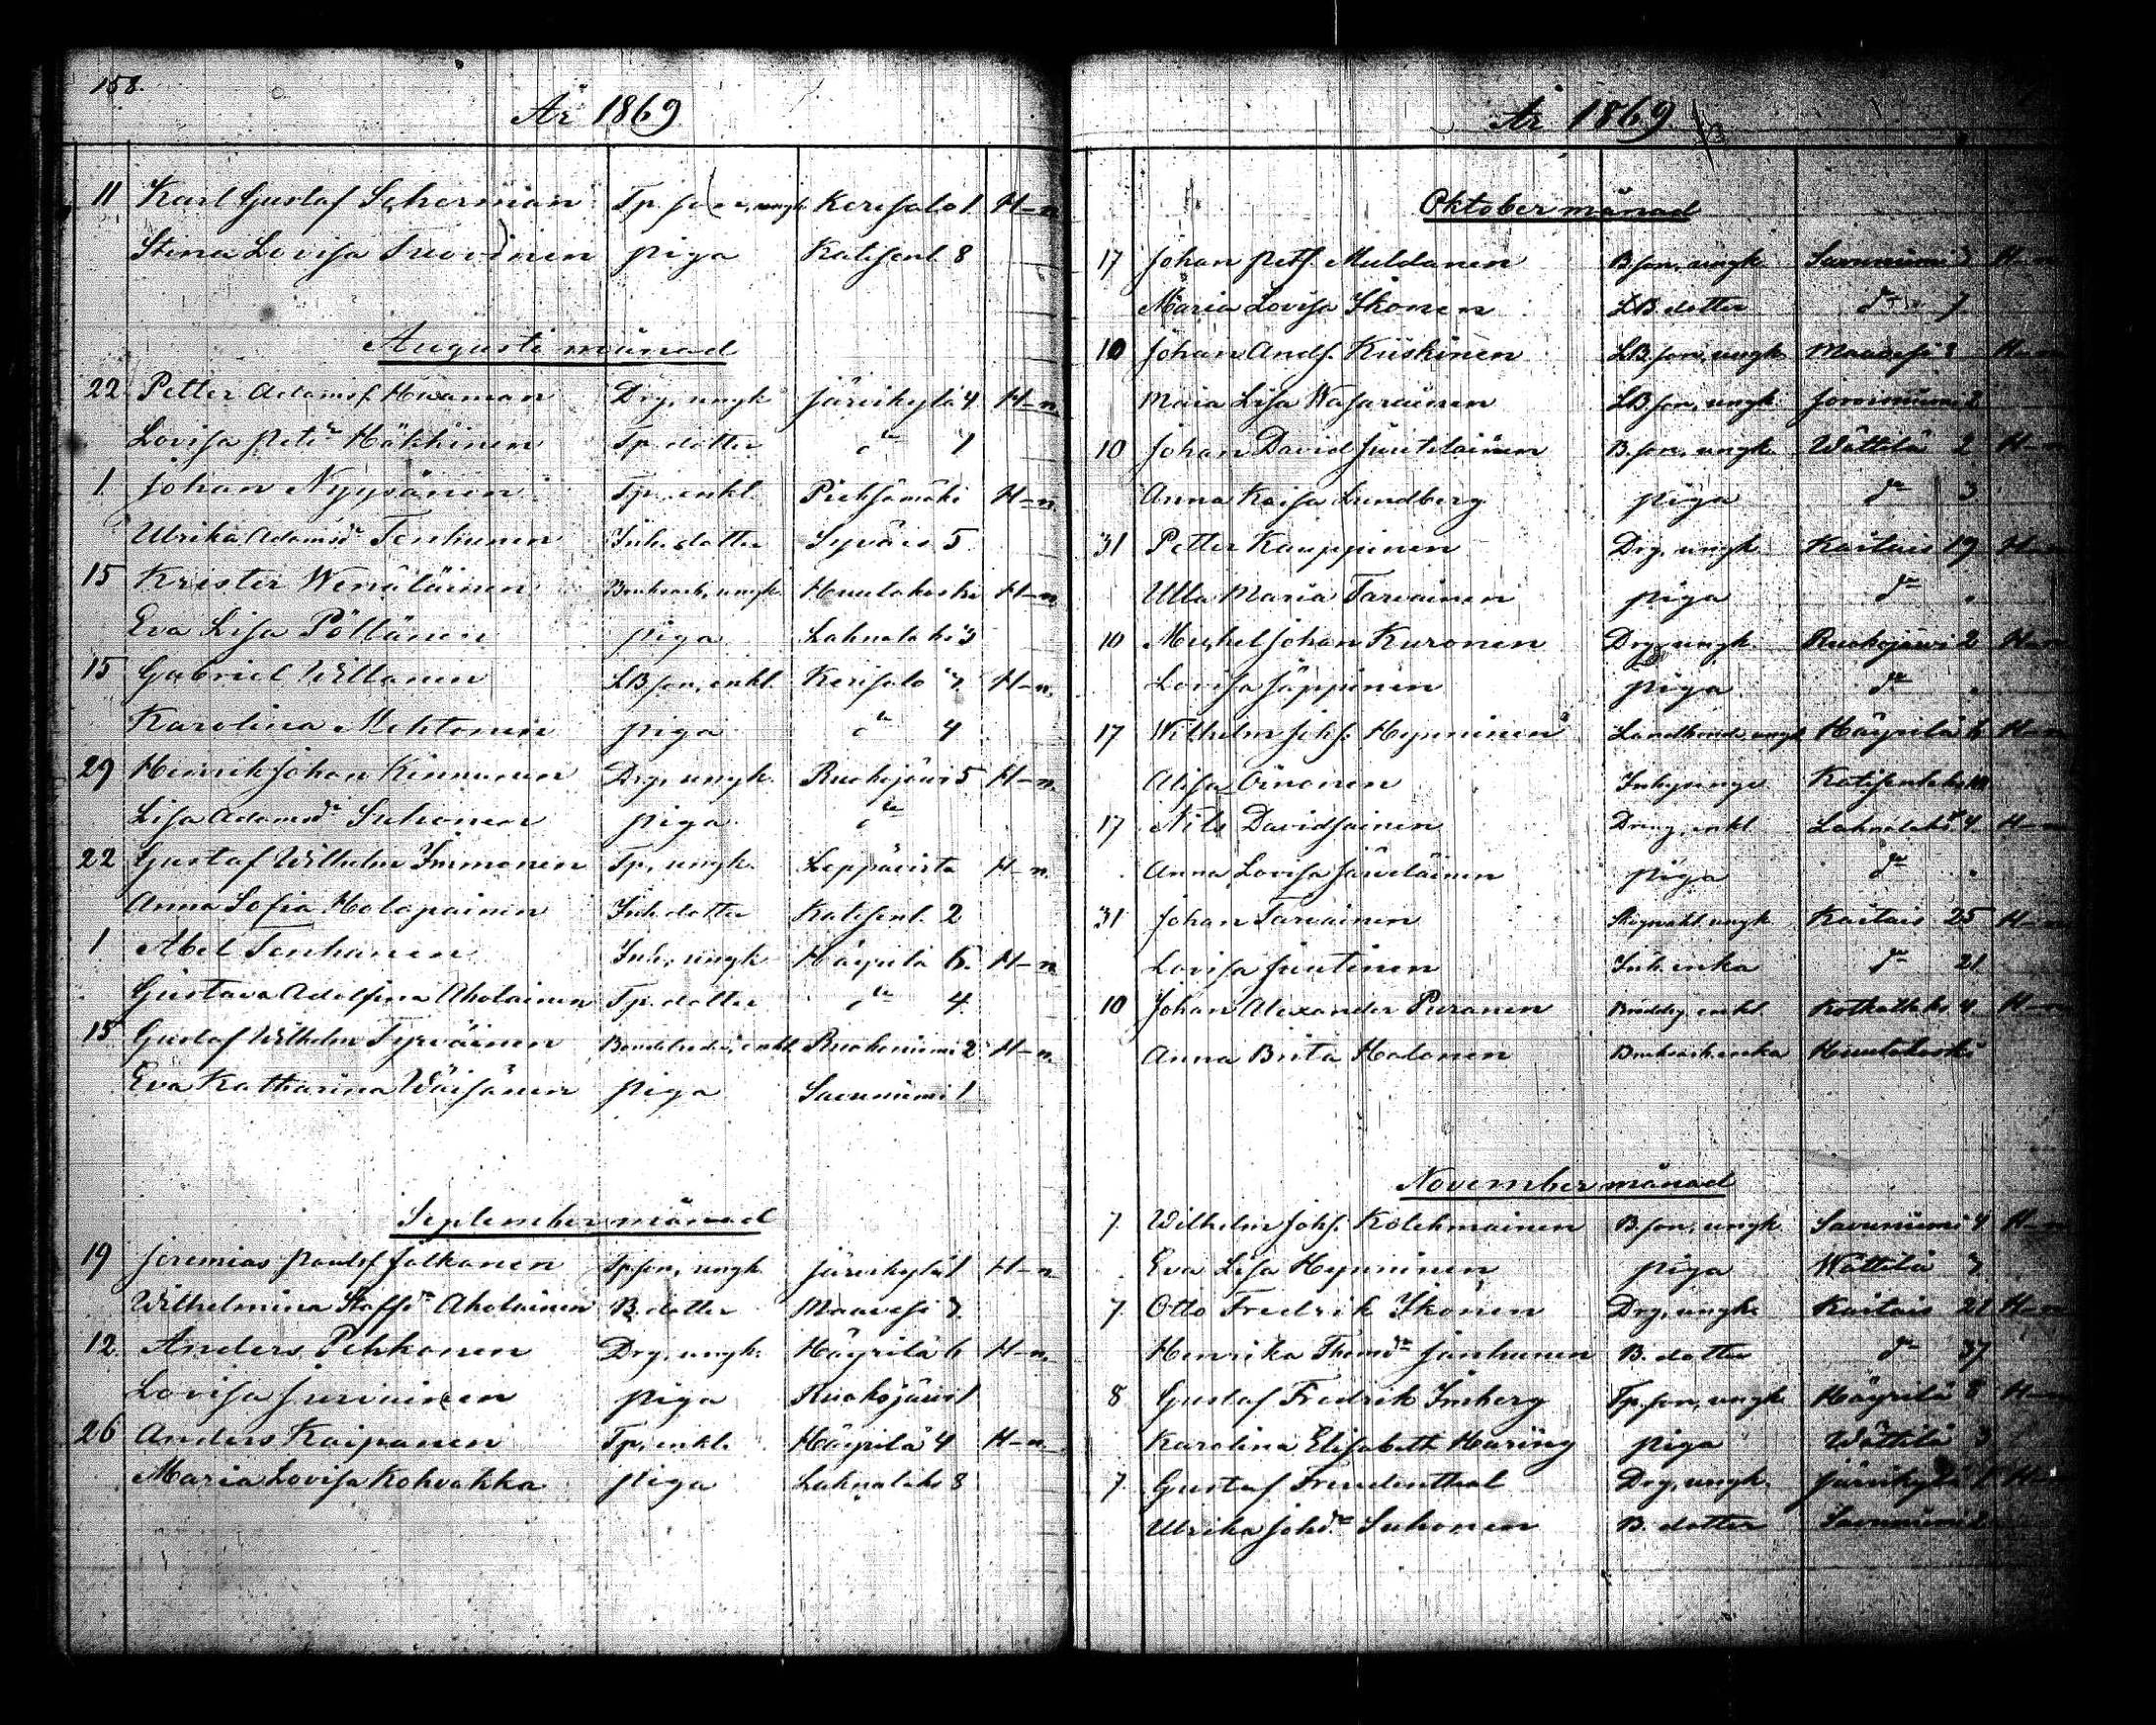 158.
År 1869
11 Karl Gustaf Scherman Tp. son, ungk. Kerisalo 1 H-n
Stina Lovisa Suovinen piga Katisenl. 8
Augusti månad
22 Petter Adamsf. Hiwaman Drg, ungk. Järvikylä 4 H-n
Lovisa Petsdr Häkkinen Tp. dotter do 7
1. Johan Nyyssönen Tp. enkl. Pieksämäki H-n
Ulrika Adamsdr Tenhunen Inh. dotter Syväis 5
15 Krister Wenäläinen ungk. Huutokoski H-n
Eva Lisa Pöllänen piga Lahnalaks 3
15 Gabriel Willanen LB son, enkl. Kerisalo 7 H-n
Karolina Mehtonen piga do 4
29 Henrik Johan Kinnunen Drg, ungk. Ruokojärvi 5 H-n
Lisa Adamsdr Suhonen piga do
22 Gustaf Wilhelm Immonen Tp, ungk. Leppävirta H-n
Anna Sofia Holopainen Inh. dotter Katisenl. 2
1 Abel Tenhunen Inh., ungk Häyrilä 6. H-n
Gustava Adolfina Aholainen Tp. dotter do 4
15 Gustaf Wilhelm Tyrväinen enkl. Ruokoniemi 2 H-n
Eva Katharina Wäisänen piga Savuniemi 1
September månad
19 Jeremias Paulsf. Jalkanen Tp. son, ungk. Järvikylä 1 H-n
Wilhelmina Staffdr Aholainen B. dotter Maavesi 7
12 Anders Pehkonen Drg, ungk. Häyrilä 6 H-n
Lovisa Juriainen piga Ruokojärvi 1
26 Anders Kaipanen Tp, enkl. Häyrilä 4 H-n
Maria Lovisa Kohvakka piga Lahnalaks 8
År 1869
Oktober månad
17 Johan Petf. Muldanen B. son, ungk. Savuniemi 3 H-n
Maria Lovisa Ikonen LB. dotter do 7
10 Johan Andf. Kiiskinen LB. son, ungk Maavesi 8 H-n
Maria Lisa Wasarainen LB. son, ungk Joroisniemi 2
10 Johan David Juutilainen B. son, ungk. Wättilä 2 H-n
Anna Kaisa Lundberg piga do 3
31 Petter Kauppinen Drg, ungk. Kaitais 19 H-n
Ulla Maria Tarvainen piga do
10 Michel Johan Kuronen Drg, ungk. Ruokojärvi 2 H-n
Lovisa Jäppinen piga do
17 Wilhelm Johf. Hynninen Landbonde, ungk Häyrilä 6 H-n
Alisa Oinonen Inhysinge Katisenlaks
17 Nils Davidsainen Dreng, enkl. Lahnalaks 4. H-n
Anna Lovisa Järveläinen piga do
31 Johan Tarvainen Skogvakt. ungk Kaitais 25 H-n
Lovisa Juutinen Inh. enka do 21
10 Johan Alexander Puranen enkl. Kotkatlaks 4. H-n
Anna Brita Halonen enka Huutokoski
November månad
7. Wilhelm Johf. Kolehmainen B. son, ungk Savuniemi 4 H-n
Eva Lisa Hynninen piga Wättilä 3
7. Otto Fredrik Ikonen Drg, ungk. Kaitais 21 H-n
Henrika Thomdr Jänhunen B. dotter do 37
8 Gustaf Fredrik Imberg Tp. son, ungk Häyrilä 8 H-n
Karolina Elisabeth Haring piga Wättilä 3
7. Gustaf Freudenthal Drg, ungk. Järvikylä 1 H-n
Ulrika Johdr Suhonen B. dotter Savuniemi 2